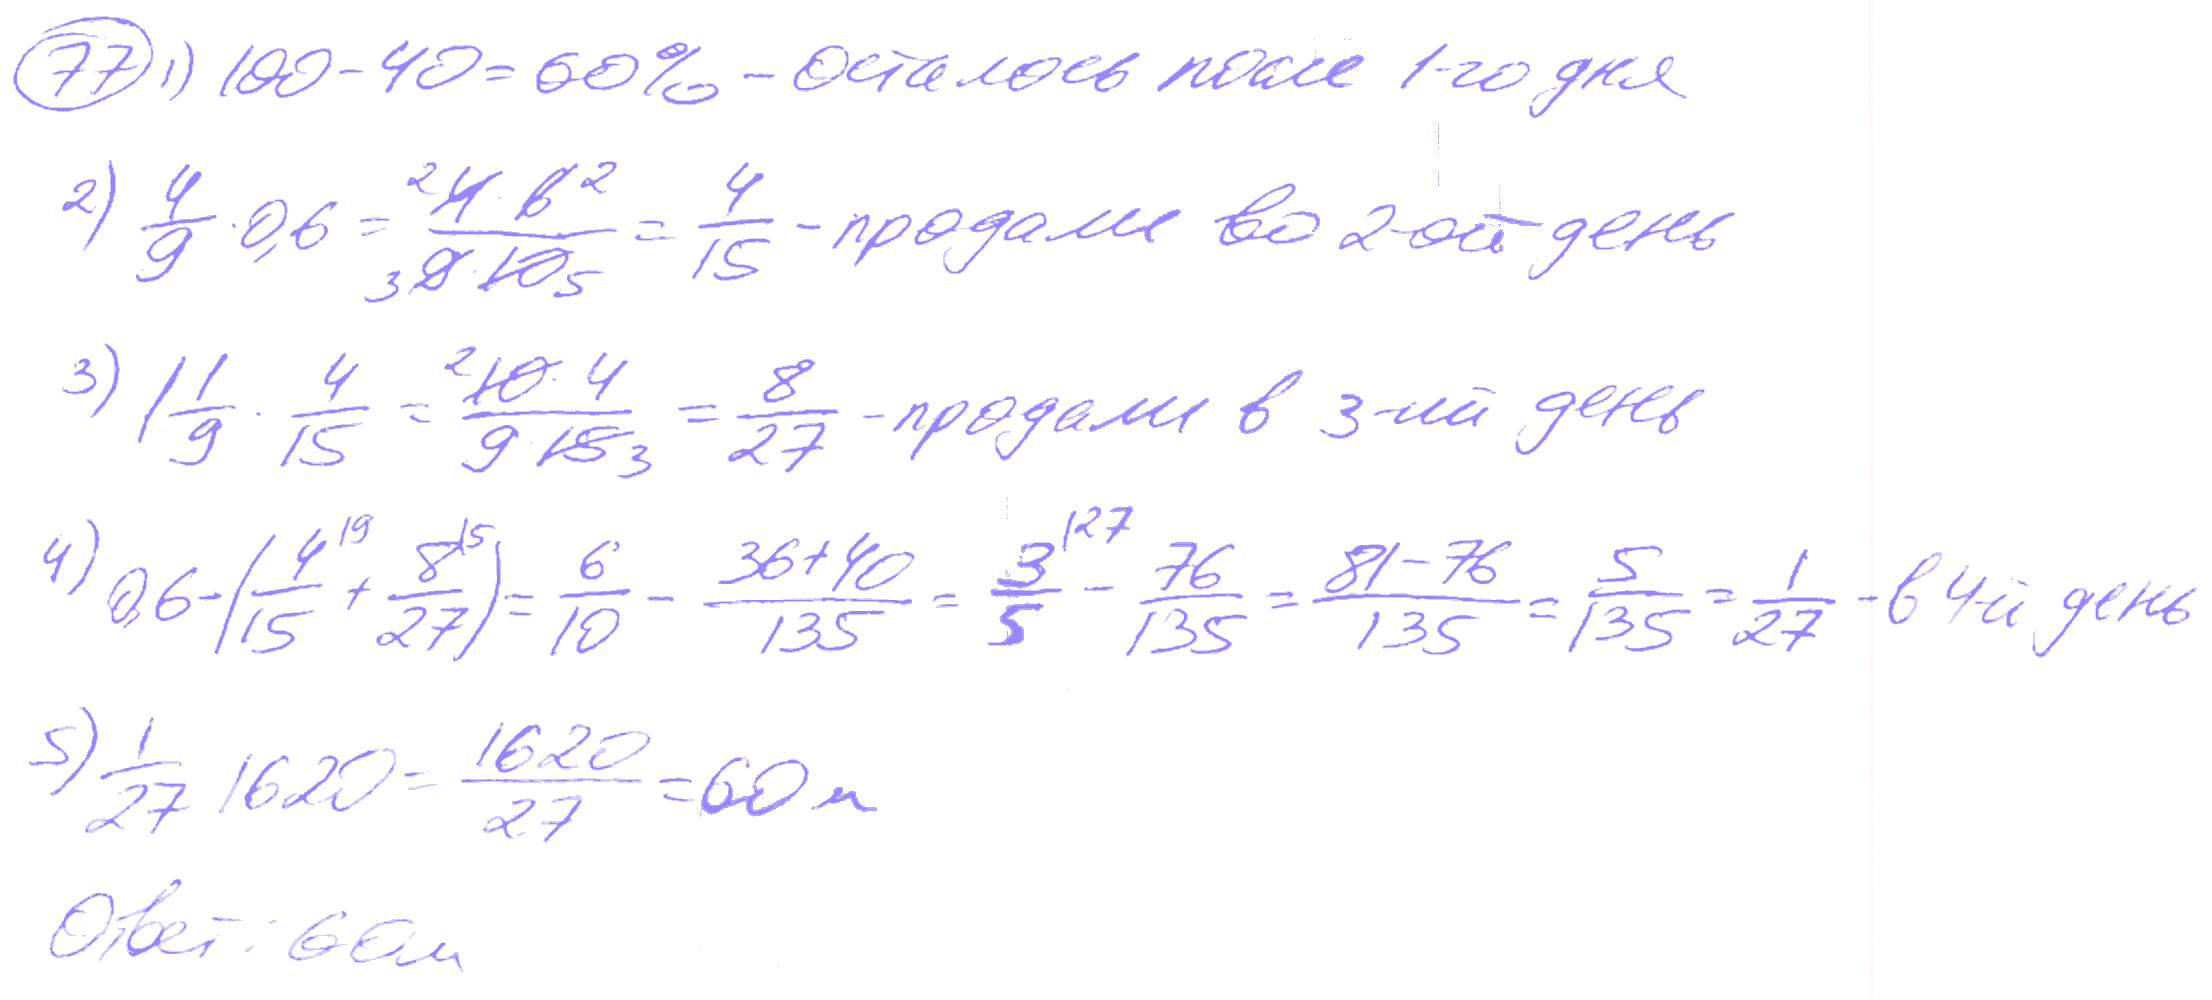 77 1) 100 - 40 = 60% - осталось после 1-го дня
2) 4/9 · 0,6 = 4 · 6 / 9 · 10 = 4/15 - продали во 2-ой день
3) 1 1/9 · 4/15 = 10 · 4 / 9 · 15 = 8/27 - продали в 3-ий день
4) 0,6 - (4/15 + 8/27) = 6/10 - 36+40/135 = 3/5 - 76/135 = 81-76/135 = 5/135 = 1/27 - в 4-й день
5) 1/27 1620 = 1620/27 = 60 м
Ответ: 60м